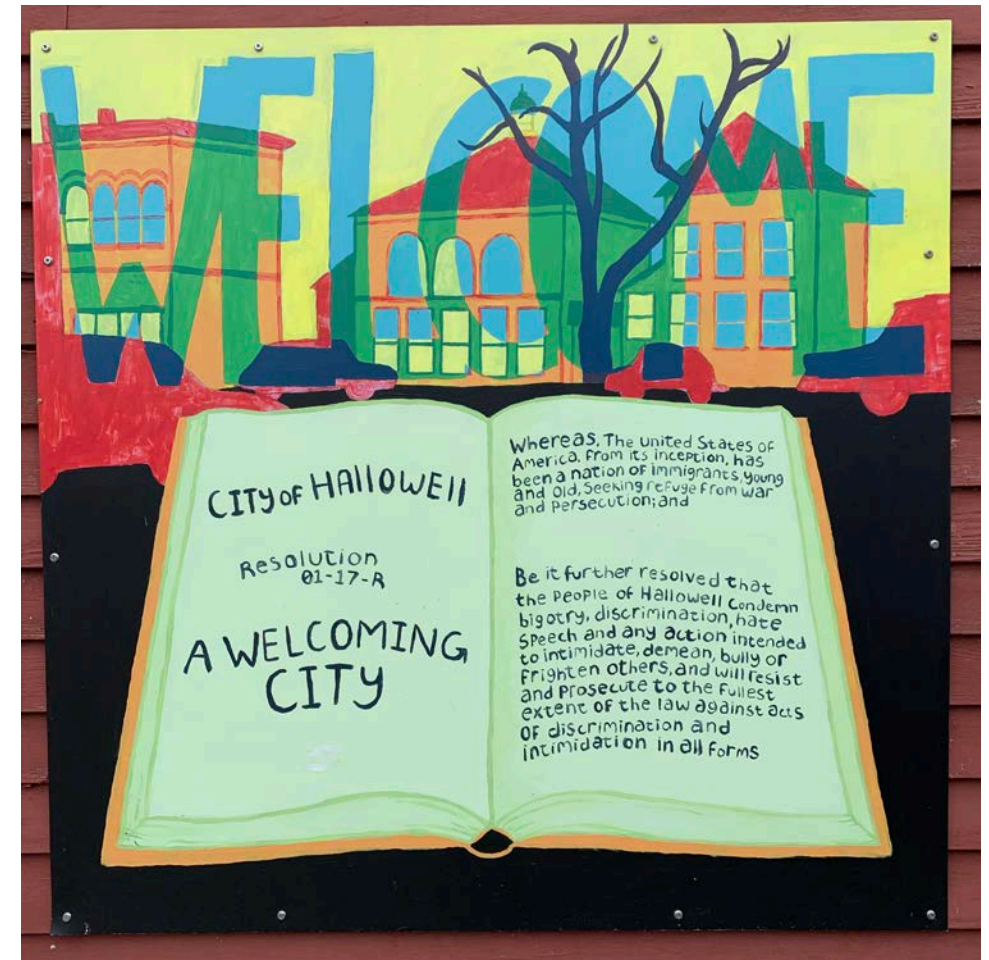 WELCOME
CITY OF HALLOWEll
Resolution
01-17-R
A WELCOMING
CITY
Whereas, The united States of
America, from its inception, has
been a nation of immigrants, young
and old, Seeking refuge from war
and Persecution; and
Be it further resolved that
the People of Hallowell Condemn
bigotry, discrimination, hate
Speech and any action intended
to intimidate, demean, bully or
Frighten others, and will resist
and Prosecute to the Fullest
extent of the law against acts
OF discrimination and
intimidation in all Forms